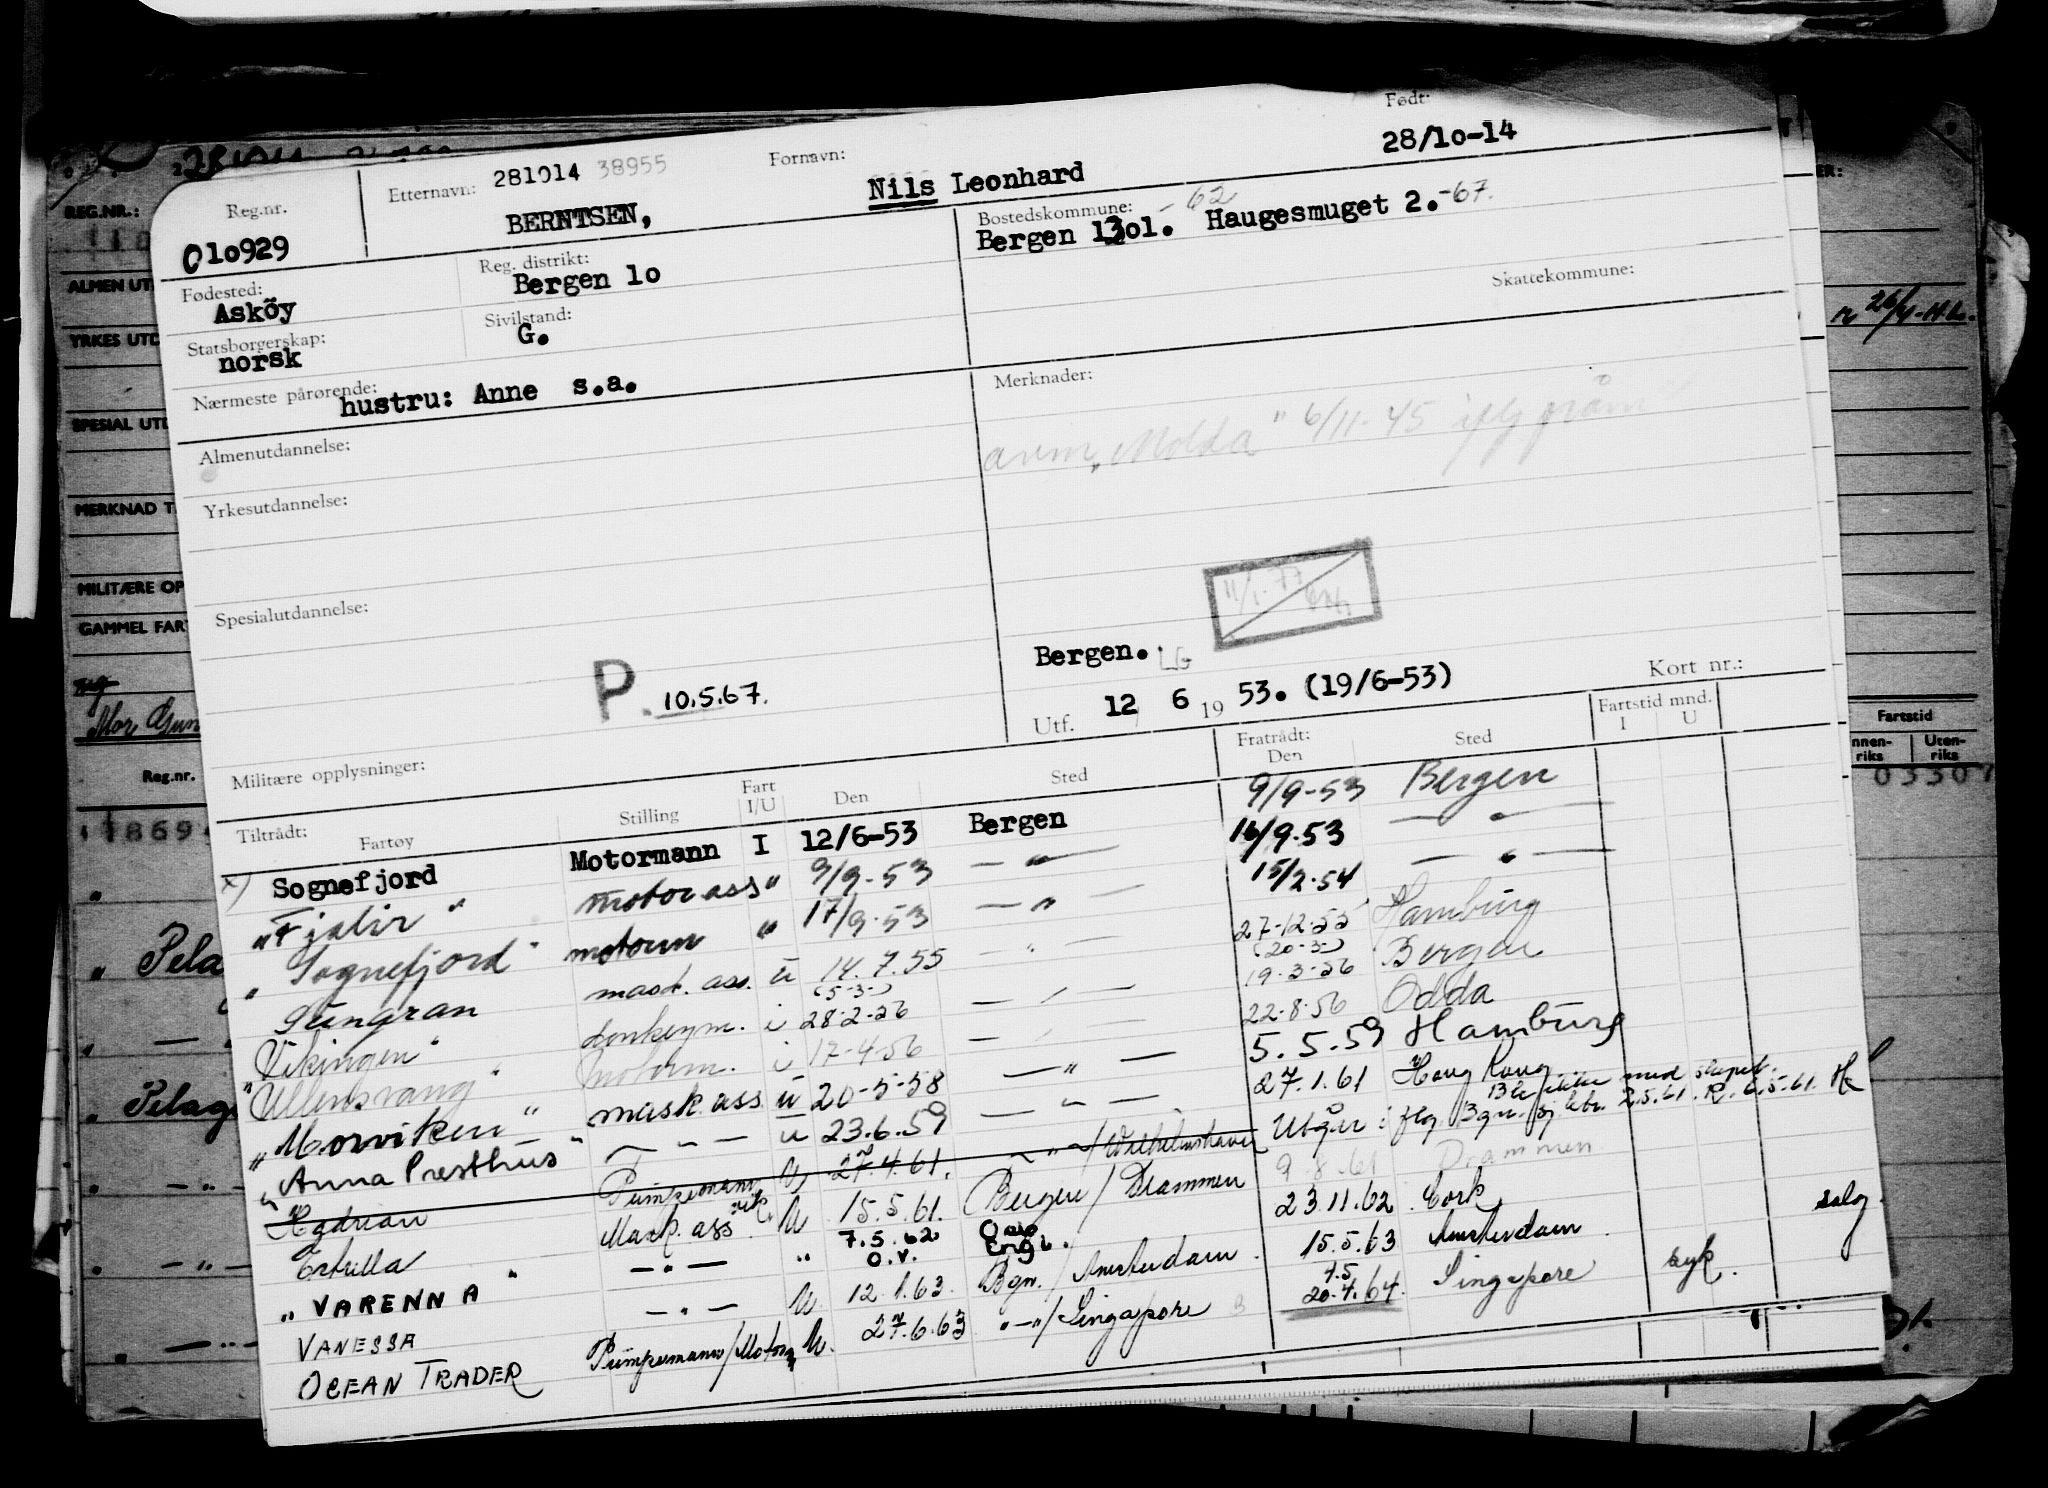 281014 38955
Reg.nr. Etternavn: Fornavn: Født:
010929 BERNTSEN, Nils Leonhard 28/10-14
Fødested: Reg. distrikt: Bostedskommune: -62
Askøy Bergen 10 Bergen 1301. Haugesmuget 2. -67.
Statsborgerskap: Sivilstand: Skattekommune:
norsk G.
Nærmeste pårørende: hustru: Anne s.a.
Merknader:
avm. "Molda" 6/11-45 iflg
Almenutdannelse:
Yrkesutdannelse:
Spesialutdannelse:
11/1-77
P. 10.5.67.
Bergen. LG
Utf. 12 6 19 53. (19/6-53) Kort nr.:
Militære opplysninger:
Tiltrådt: Fartøy Stilling Fart I/U Den Sted Fratrådt: Den Sted Fartstid mnd. I U
x) Sognefjord Motormann I 12/6-53 Bergen 9/9-53 Bergen
"Fjalir" motor ass " 9/9-53 — " — 16/9.53 — " —
"Sognefjord" motorm " 17/9-53 — " — 15/2-54 — " —
Gungran mask. ass. u 14.7.55 — " — 27-12-55 Hamburg
(5-3-) (20-3-)
Vikingen" donkeym. i 28-2-56 — " — 19-3-56 Bergen
"Ullensvang" Motorm. i 17-4-56 — 22-8-56 Odda
"Morviken" mask ass u 20-5-58 — " — 5.5.59 Hamburg
"Anna Presthus" — " — u 23.6.59 — " — 27.1.61 Hong Kong
Hadrian Pumpemann U 27.4.61. — " —/Wilhelmshaven Utgår iflg. Bgn. 2.5.61. R. 6.5.61.
Ble ikke med skipet.
Estrella Mask. ass vik. U 15.5.61. Bergen/Drammen 9.8.61 Drammen
"VARENNA" — " — " 7.5.62 O.V. 23.11.62 Cork
VANESSA — " — U 12.1.63. Bgn./Amsterdam. 15.5.63 Amsterdam. salg
OCEAN TRADER Pumpemann/Motorm U. 27.6.63 — " —/Singapore 4.5 20.4.64. Singapore syk.
REG.NR.:
ALMEN UT
YRKES UTD
SPESIAL UTD
MERKNAD T
MILITÆRE OP
GAMMEL FAR
Mor Gun
Reg.nr.
1869
" Pela
" — " —
" Pelag
" — " —
" — " —
" — " —
ER:
Fartstid
nnen-riks Uten-riks
03307